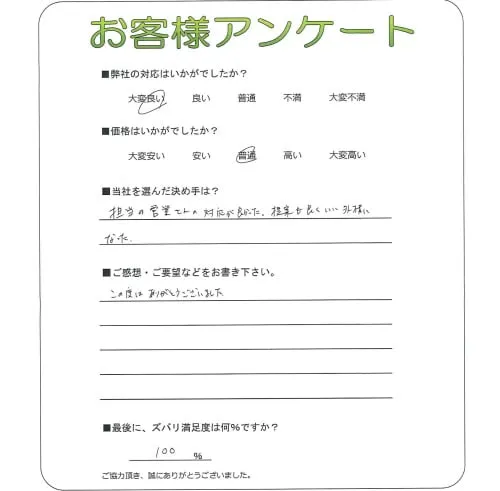 お客様アンケート
■弊社の対応はいかがでしたか？
大変良い 良い 普通 不満 大変不満
■価格はいかがでしたか？
大変安い 安い 普通 高い 大変高い
■当社を選んだ決め手は？
担当の営業さんの対応が良かった、提案も良くいい外構に
なった.
■ご感想・ご要望などをお書き下さい。
この度は ありがとうございました
■最後に、ズバリ満足度は何％ですか？
100 %
ご協力頂き、誠にありがとうございました。